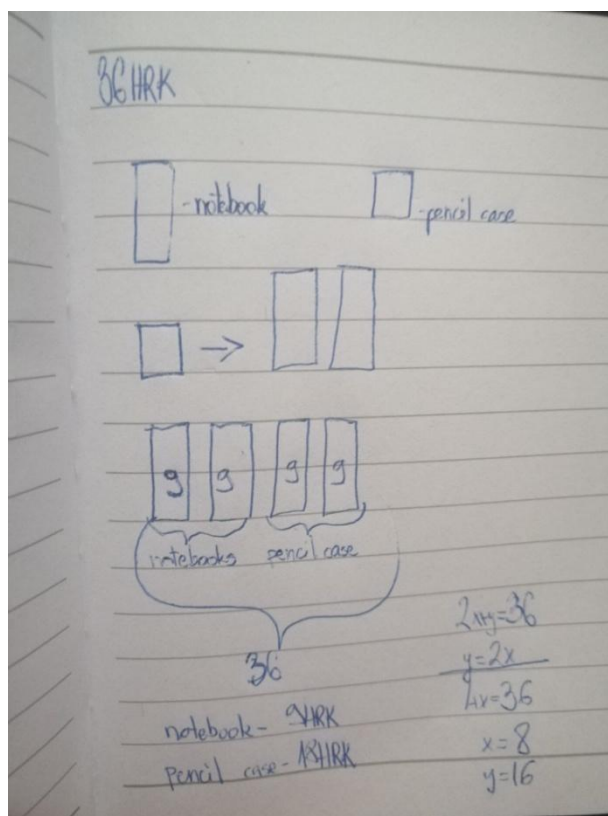 36 HRK
-notebook
-pencil case
9 9 9 9
notebooks pencil case
36
notebook - 9HRK
pencil case - 18HRK
2x+y=36
y=2x
4x=36
x=8
y=16